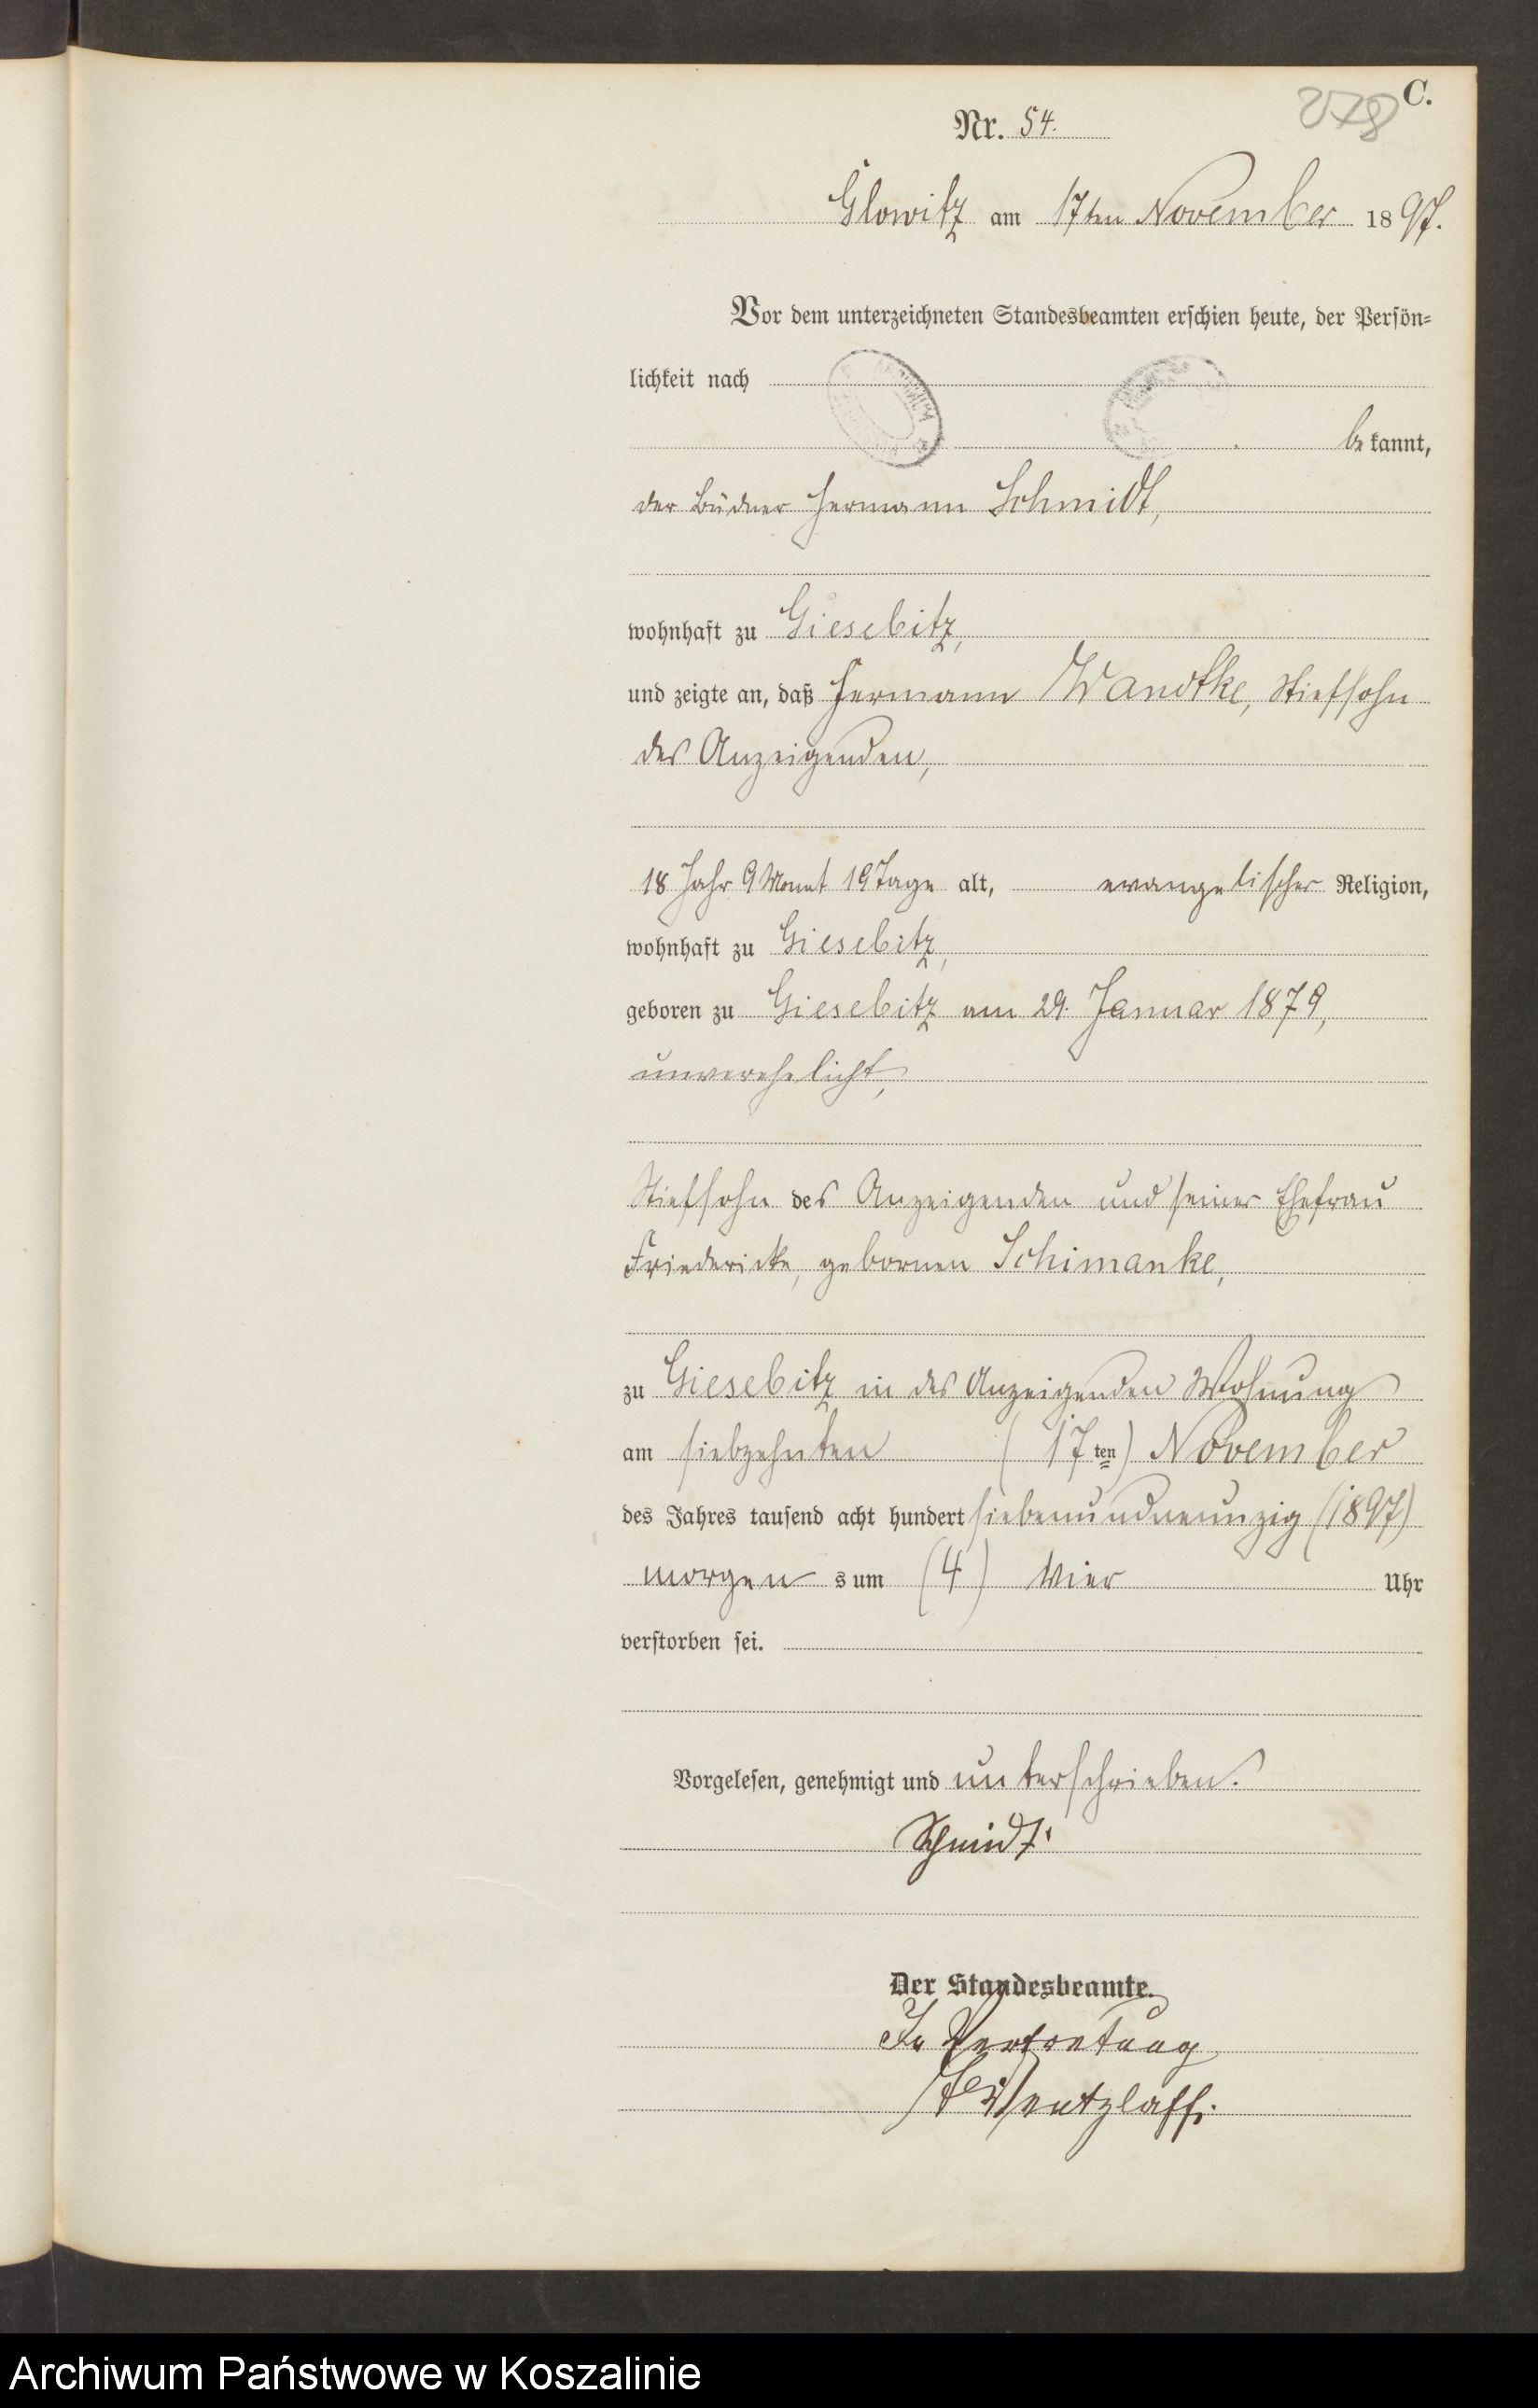 C.
278
Nr. 54.
Glowitz am 17ten November 1897.
Vor dem unterzeichneten Standesbeamten erschien heute, der Persön=
lichkeit nach
bekannt,
der Büdner Hermann Schmidt,
wohnhaft zu Giesebitz,
und zeigte an, daß Hermann Wandtke, Stiefsohn
des Anzeigenden,
18 Jahr 9 Monat 19 Tage alt, evangelischer Religion,
wohnhaft zu Giesebitz,
geboren zu Giesebitz am 29. Januar 1879,
unverehelicht,
Stiefsohn des Anzeigenden und seiner Ehefrau
Friedericke, gebornen Schimanke,
zu Giesebitz in des Anzeigenden Wohnung
am siebzehnten (17ten) November
des Jahres tausend acht hundert siebenundneunzig (1897)
morgens um (4) vier Uhr
verstorben sei.
Vorgelesen, genehmigt und unterschrieben.
Schmidt
Der Standesbeamte.
In Vertretung
Wentzlaff.
Archiwum Państwowe w Koszalinie